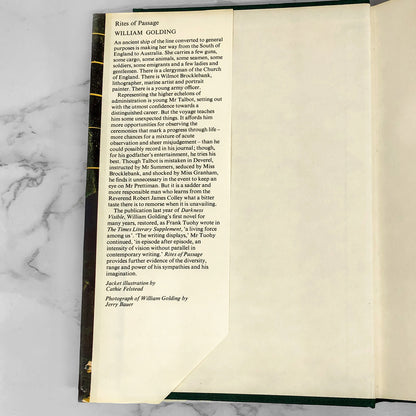 Rites of Passage
WILLIAM GOLDING
An ancient ship of the line converted to general
purposes is making her way from the South of
England to Australia. She carries a few guns,
some cargo, some animals, some seamen, some
soldiers, some emigrants and a few ladies and
gentlemen. There is a clergyman of the Church
of England. There is Wilmot Brocklebank,
lithographer, marine artist and portrait
painter. There is a young army officer.
Representing the higher echelons of
administration is young Mr Talbot, setting out
with the utmost confidence towards a
distinguished career. But the voyage teaches
him some unexpected things. It affords him
more opportunities for observing the
ceremonies that mark a progress through life—
more chances for a mixture of acute
observation and sheer misjudgement— than he
could possibly record in his journal; though,
for his godfather's entertainment, he tries his
best. Though Talbot is mistaken in Deverel,
instructed by Mr Summers, seduced by Miss
Brocklebank, and shocked by Miss Granham,
he finds it unnecessary in the event to keep an
eye on Mr Prettiman. But it is a sadder and
more responsible man who learns from the
Reverend Robert James Colley what a bitter
taste there is to remorse when it is unavailing.
The publication last year of Darkness
Visible, William Golding's first novel for
many years, restored, as Frank Tuohy wrote in
The Times Literary Supplement, 'a living force
among us'. 'The writing displays,' Mr Tuohy
continued, 'in episode after episode, an
intensity of vision without parallel in
contemporary writing.' Rites of Passage
provides further evidence of the diversity,
range and power of his sympathies and his
imagination.
Jacket illustration by
Cathie Felstead
Photograph of William Golding by
Jerry Bauer